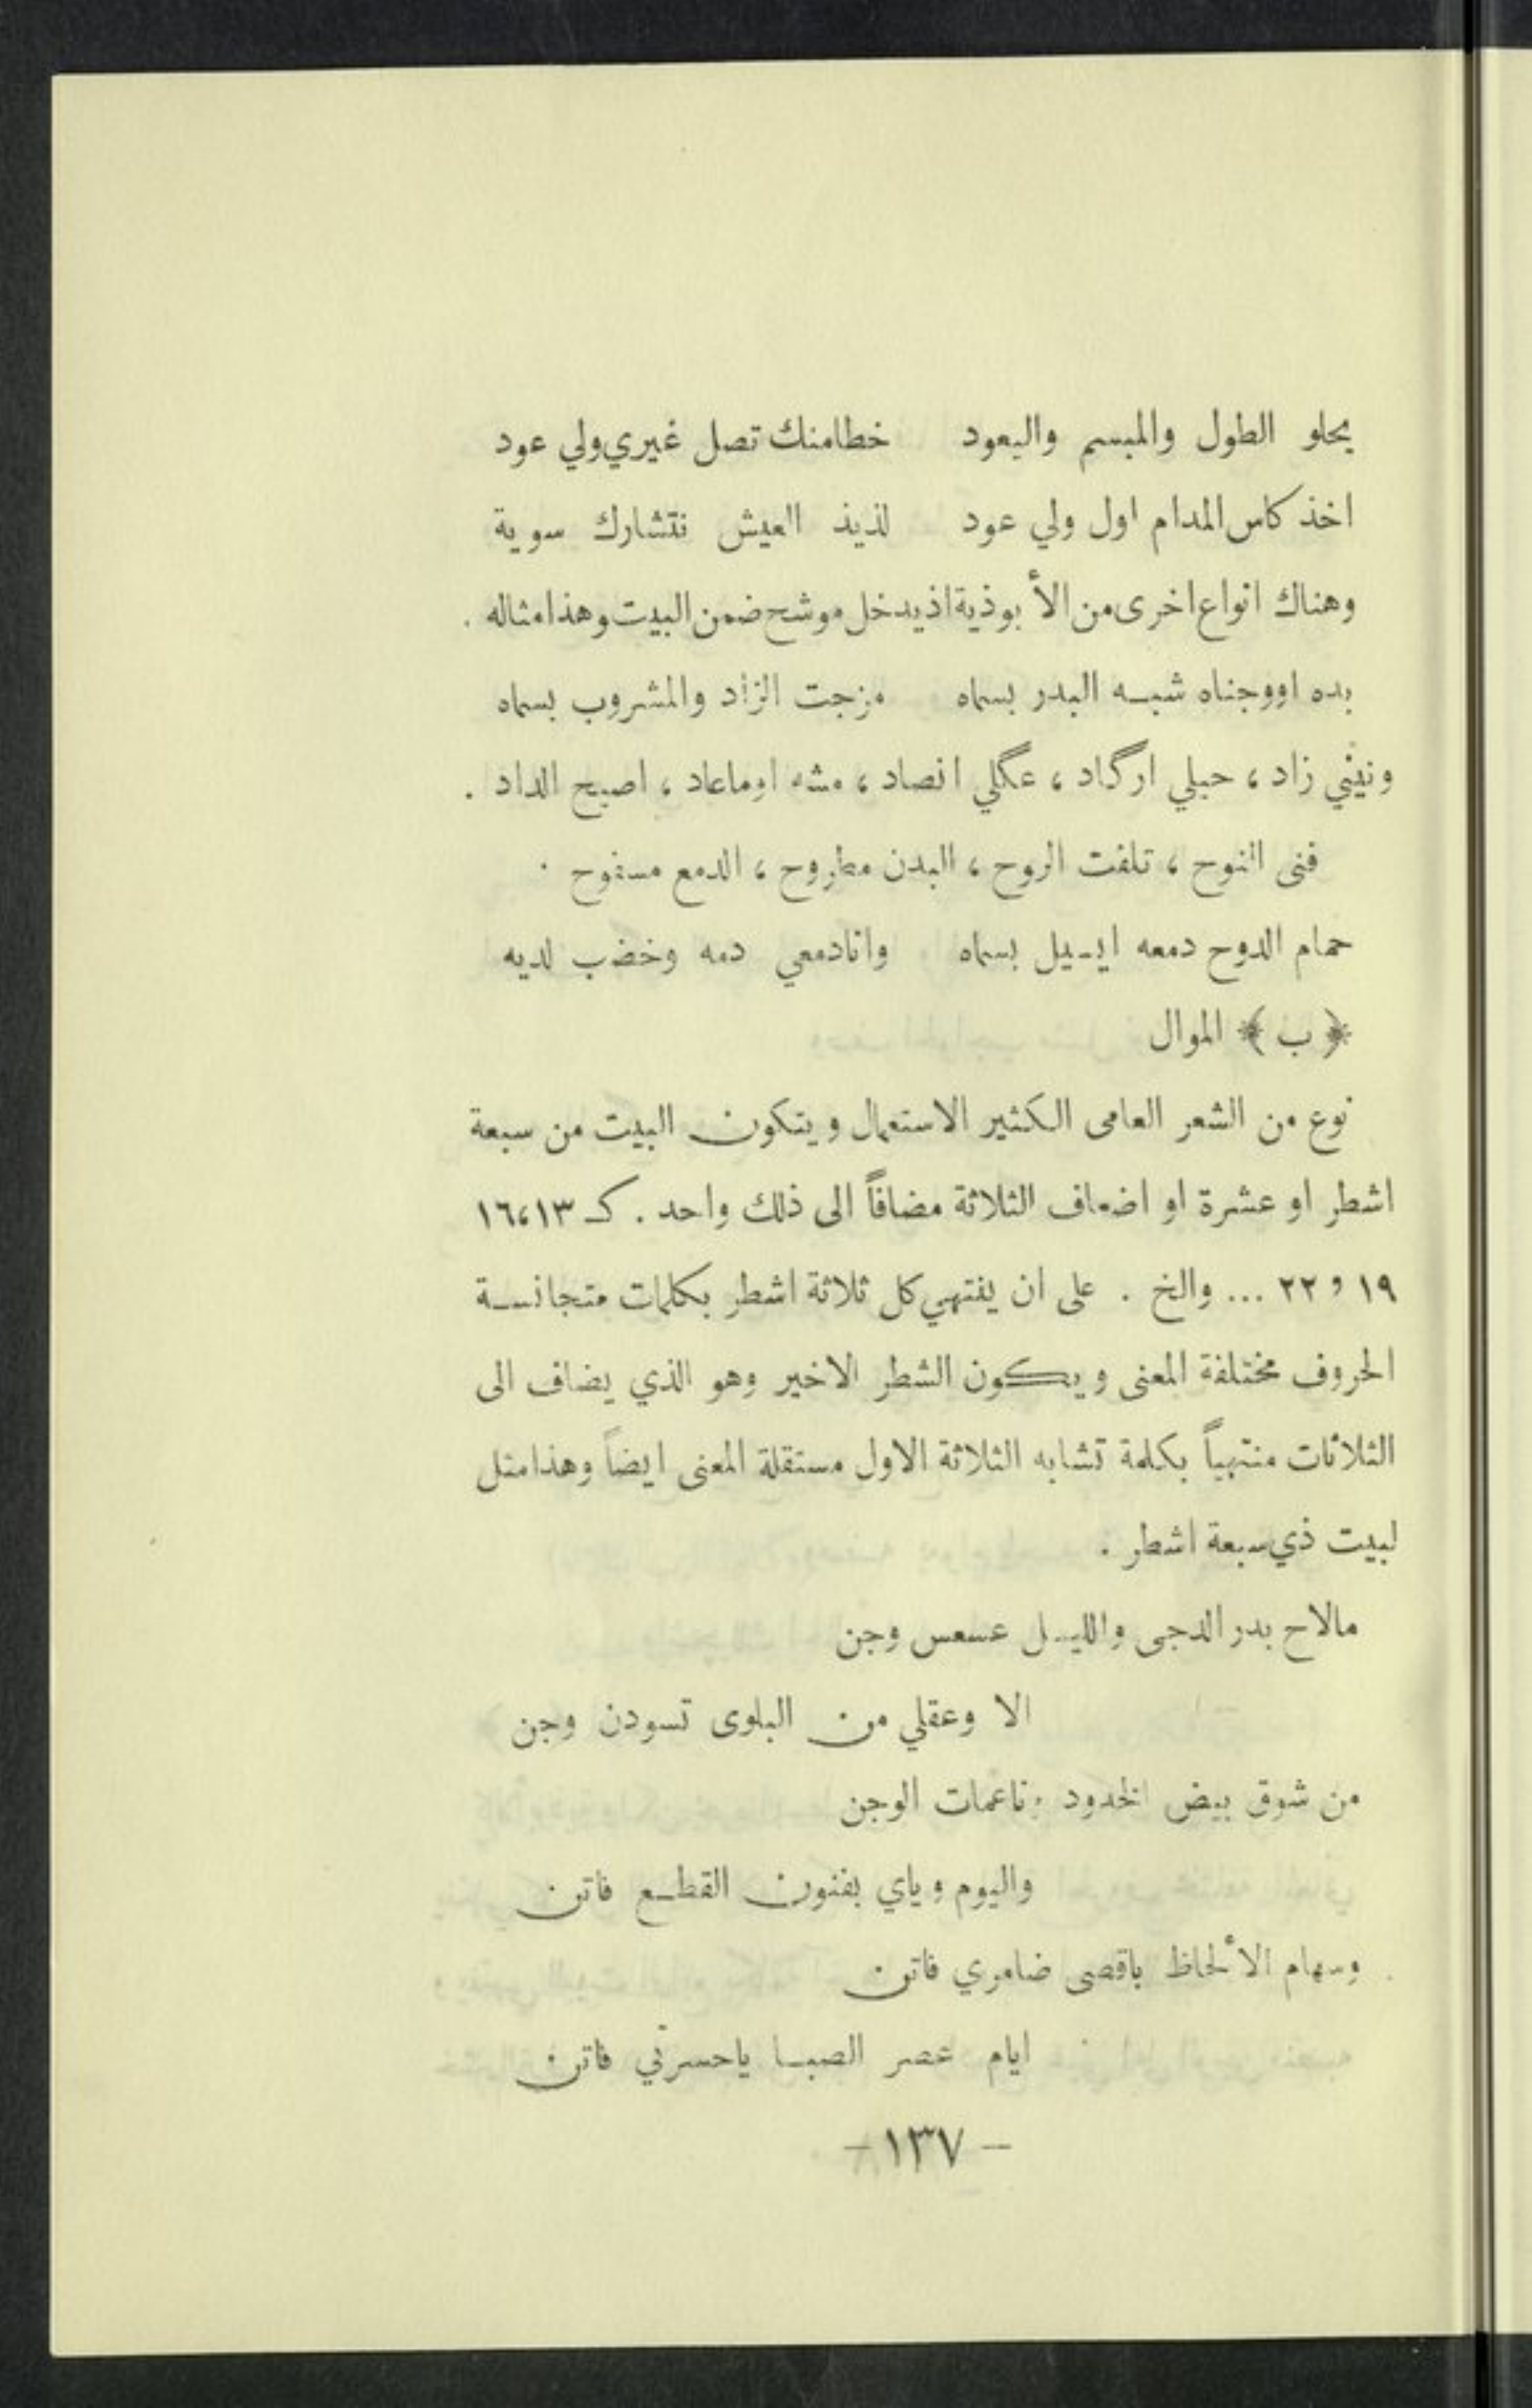 يحلو الطول والمبسم واليعود خطامنك تصل غيري ولي عود
اخذ كاس المدام اول ولي عود لذيذ العيش نتشارك سوية
وهناك انواع اخرى من الأبوذية اذ يدخل موشح ضمن البيت وهذا مثاله .
بده اووجناه شبه البدر بسماه مزجت الزاد والمشروب بسماه
ونيني زاد ، حبلي ارگاد ، عگلي انصاد ، مشه اوماعاد ، اصبح الداد .
فنى النوح ، تلفت الروح ، البدن مطروح ، الدمع مسفوح .
حمام الدوح دمعه ايسيل بسماه وانادمعي دمه وخضب لديه
﴿ ب ﴾ الموال
نوع من الشعر العامي الكثير الاستعمال ويتكون البيت من سبعة
اشطر او عشرة او اضعاف الثلاثة مضافاً الى ذلك واحد . كـ ١٣،١٦
١٩ و ٢٢ ... والخ . على ان يفتهي كل ثلاثة اشطر بكلمات متجانسة
الحروف مختلفة المعنى ويكون الشطر الاخير وهو الذي يضاف الى
الثلاثات منتهياً بكلمة تشابه الثلاثة الاول مستقلة المعنى ايضاً وهذا مثل
لبيت ذي سبعة اشطر .
مالاح بدر الدجى والليل عسعس وجن
الا وعقلي من البلوى تسودن وجن
من شوق بيض الخدود وناعمات الوجن
واليوم وياي بفنون القطع فاتن
وسهام الألحاظ باقصى ضامري فاتن
ايام عصر الصبا ياحسرتي فاتن
- ١٣٧ -